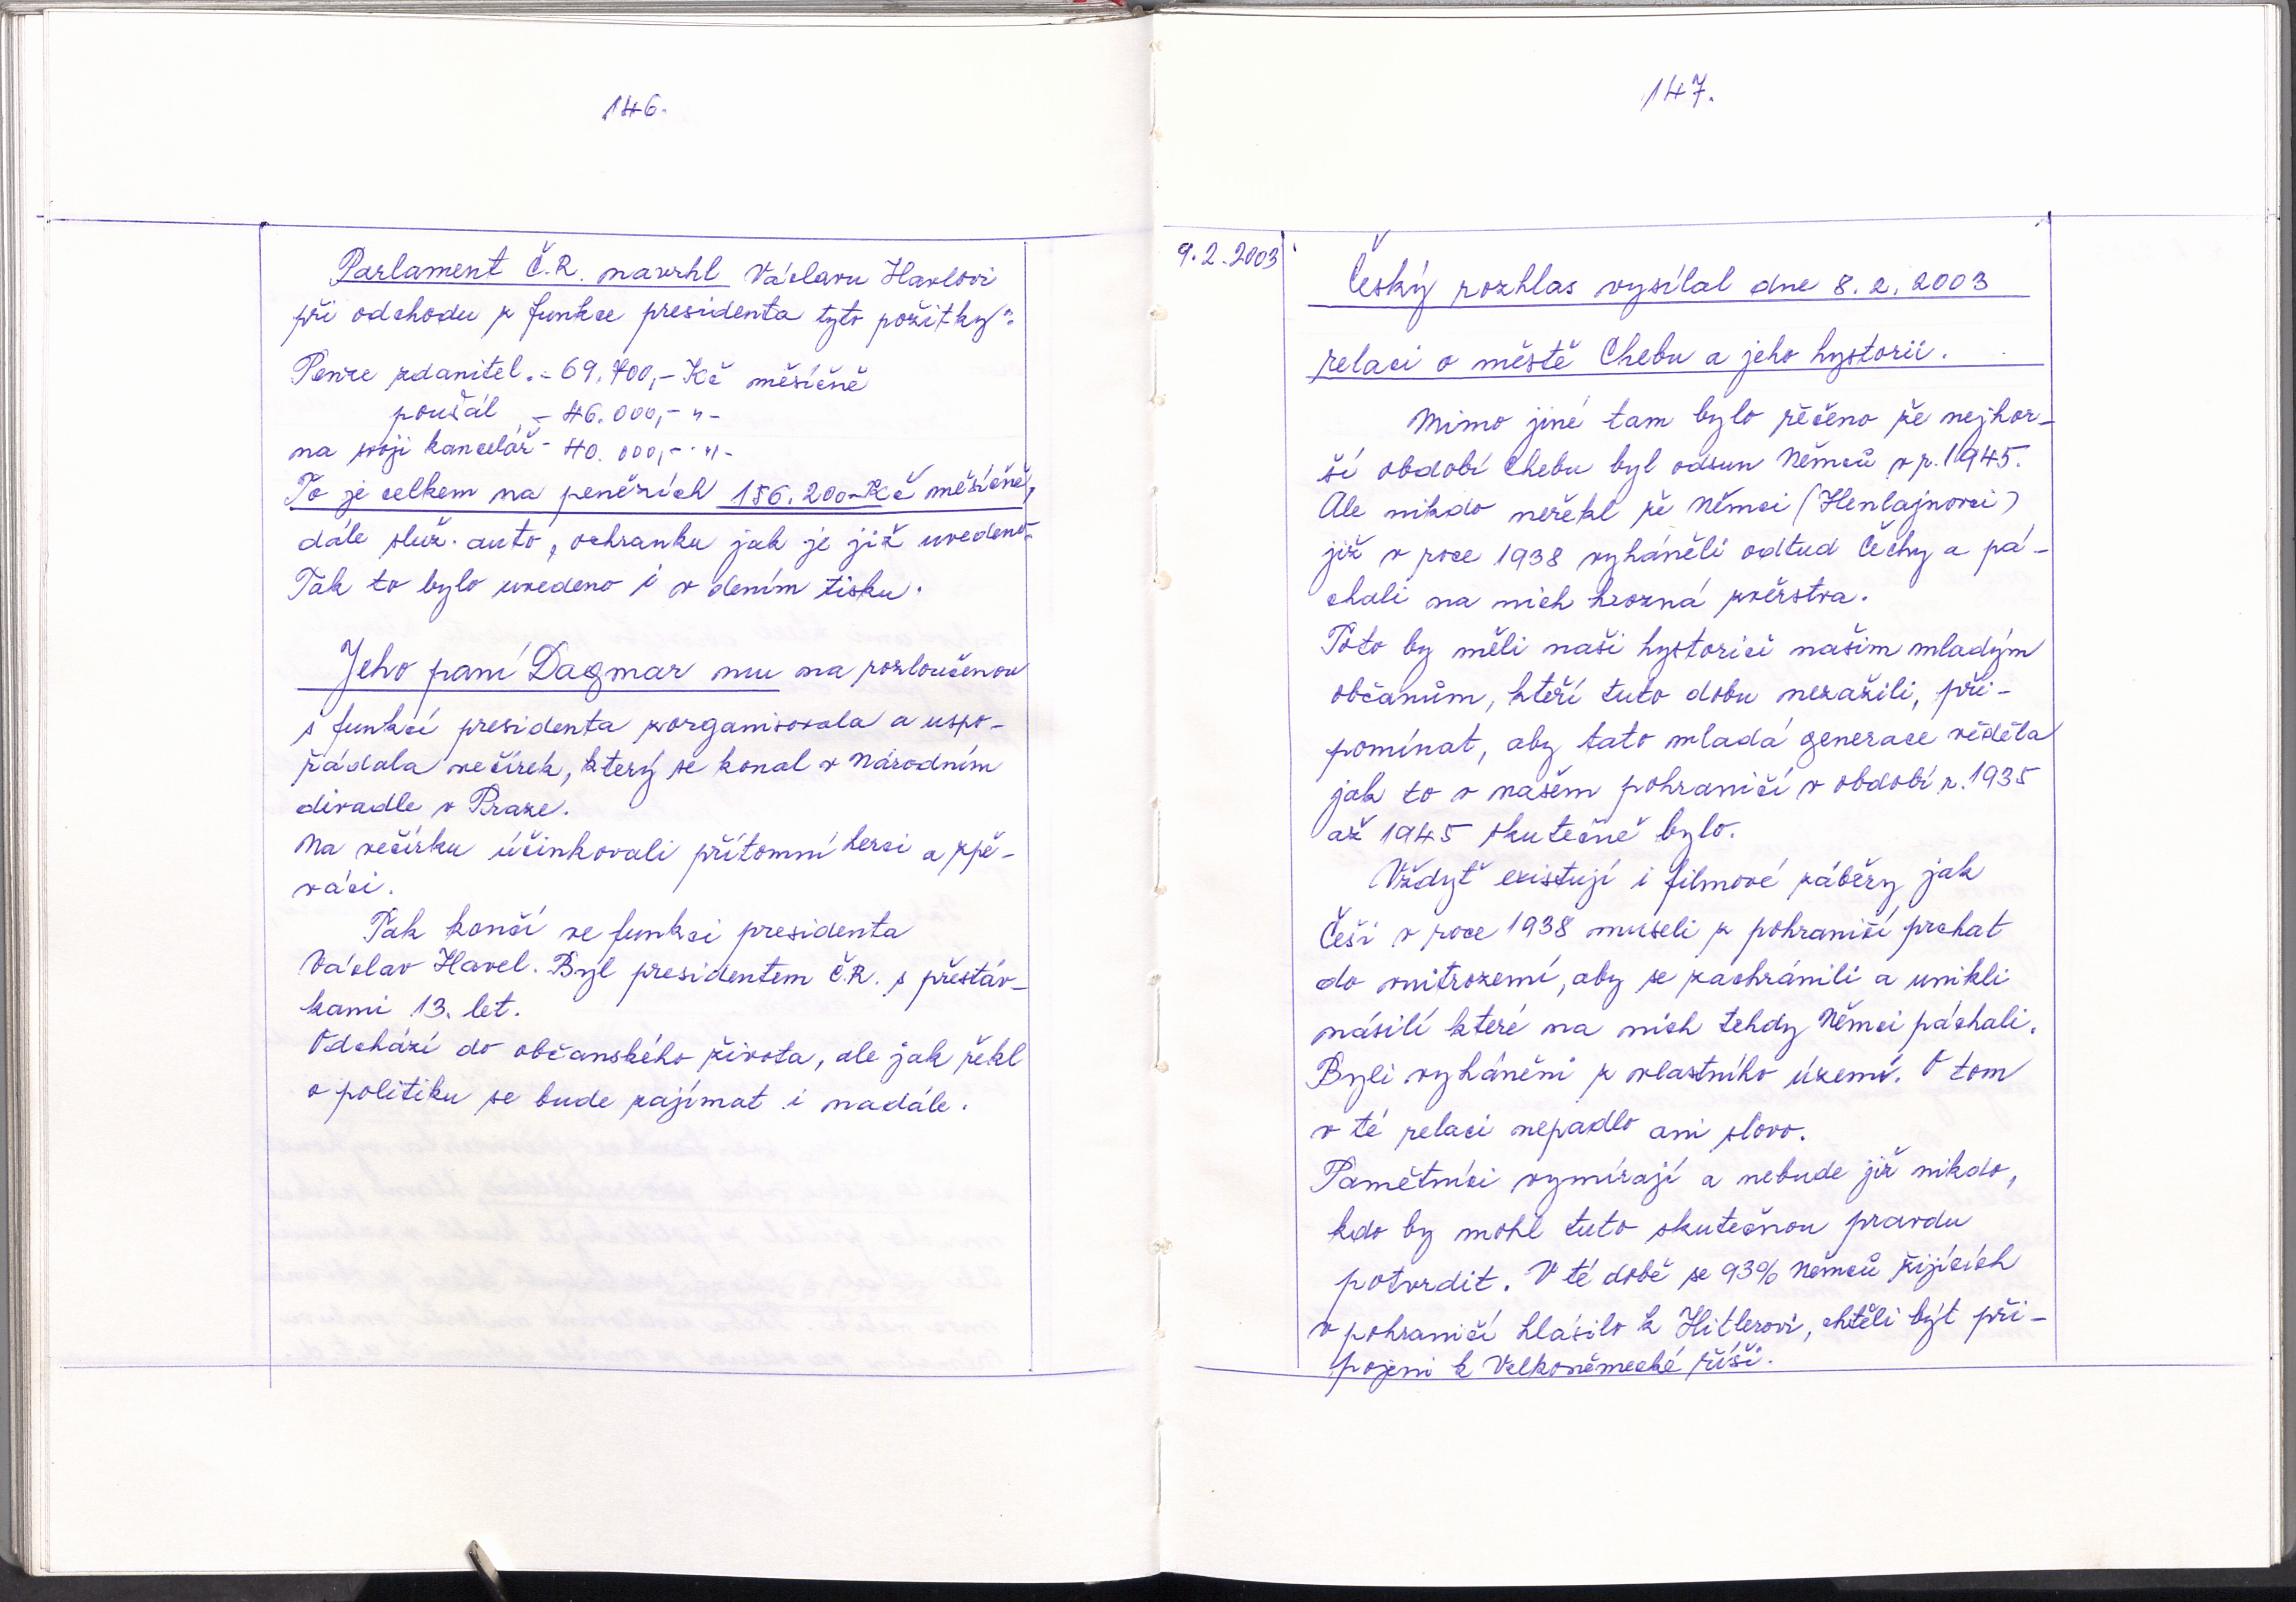 146.
Parlament Č.R. navrhl Václavu Havlovi
při odchodu z funkce presidenta tyto požitky":
Penze zdanitel. - 69.400,- Kč měsíčně
poušál - 46.000,- " -
na svoji kancelář - 40.000,- " -
To je celkem na penězích 156.200-Kč měsíčně,
dále služ. auto, ochranku jak je již uvedeno-
Tak to bylo uvedeno i vením tisku.
Jeho paní Dagmar mu na rozloučenou
s funkcí presidenta zorganisovala a uspo-
řádala večírek, který se konal v Národním
divadle v Praze.
Na večírku účinkovali přítomní herci a zpě-
váci.
Tak končí ve funkci presidenta
Václav Havel. Byl presidentem Č.R. s přestáv-
kami 13. let.
Odchází do občanského života, ale jak řekl
o politiku se bude zajímat i nadále.
147.
9.2.2003
Český rozhlas vysílal dne 8.2.2003
relaci o městě Chebu a jeho hystorii.
Mimo jiné tam bylo řěčeno že nejhor-
ší období Chebu byl odsun Němců v r. 1945.
Ale nikdo neřekl že Němci (Henlajnovci)
již v roce 1938 vyháněli odtud Čechy a pá-
chali na nich hrozná zvěrstva.
Toto by měli naši hystorici našim mladým
občanům, kteří tuto dobu nezažili, při-
pomínat, aby tato mladá generace věděla
jak to v našem pohraničí v období r. 1935
až 1945 skutečně bylo.
Vždyť existují i filmové záběry jak
Češi v roce 1938 museli z pohraničí prchat
do vnitrozemí, aby se zachránili a unikli
násilí které na nich tehdy Němci páchali.
Byli vyháněni z vlastního území. O tom
v té relaci nepadlo ani slovo.
Pamětníci vymírají a nebude již nikdo,
kdo by mohl tuto skutečnou pravdu
potvrdit. V té době se 93% Němců žijících
v pohraničí hlásilo k Hitlerovi, chtěli být při-
pojeni k Velkoněmecké říši.